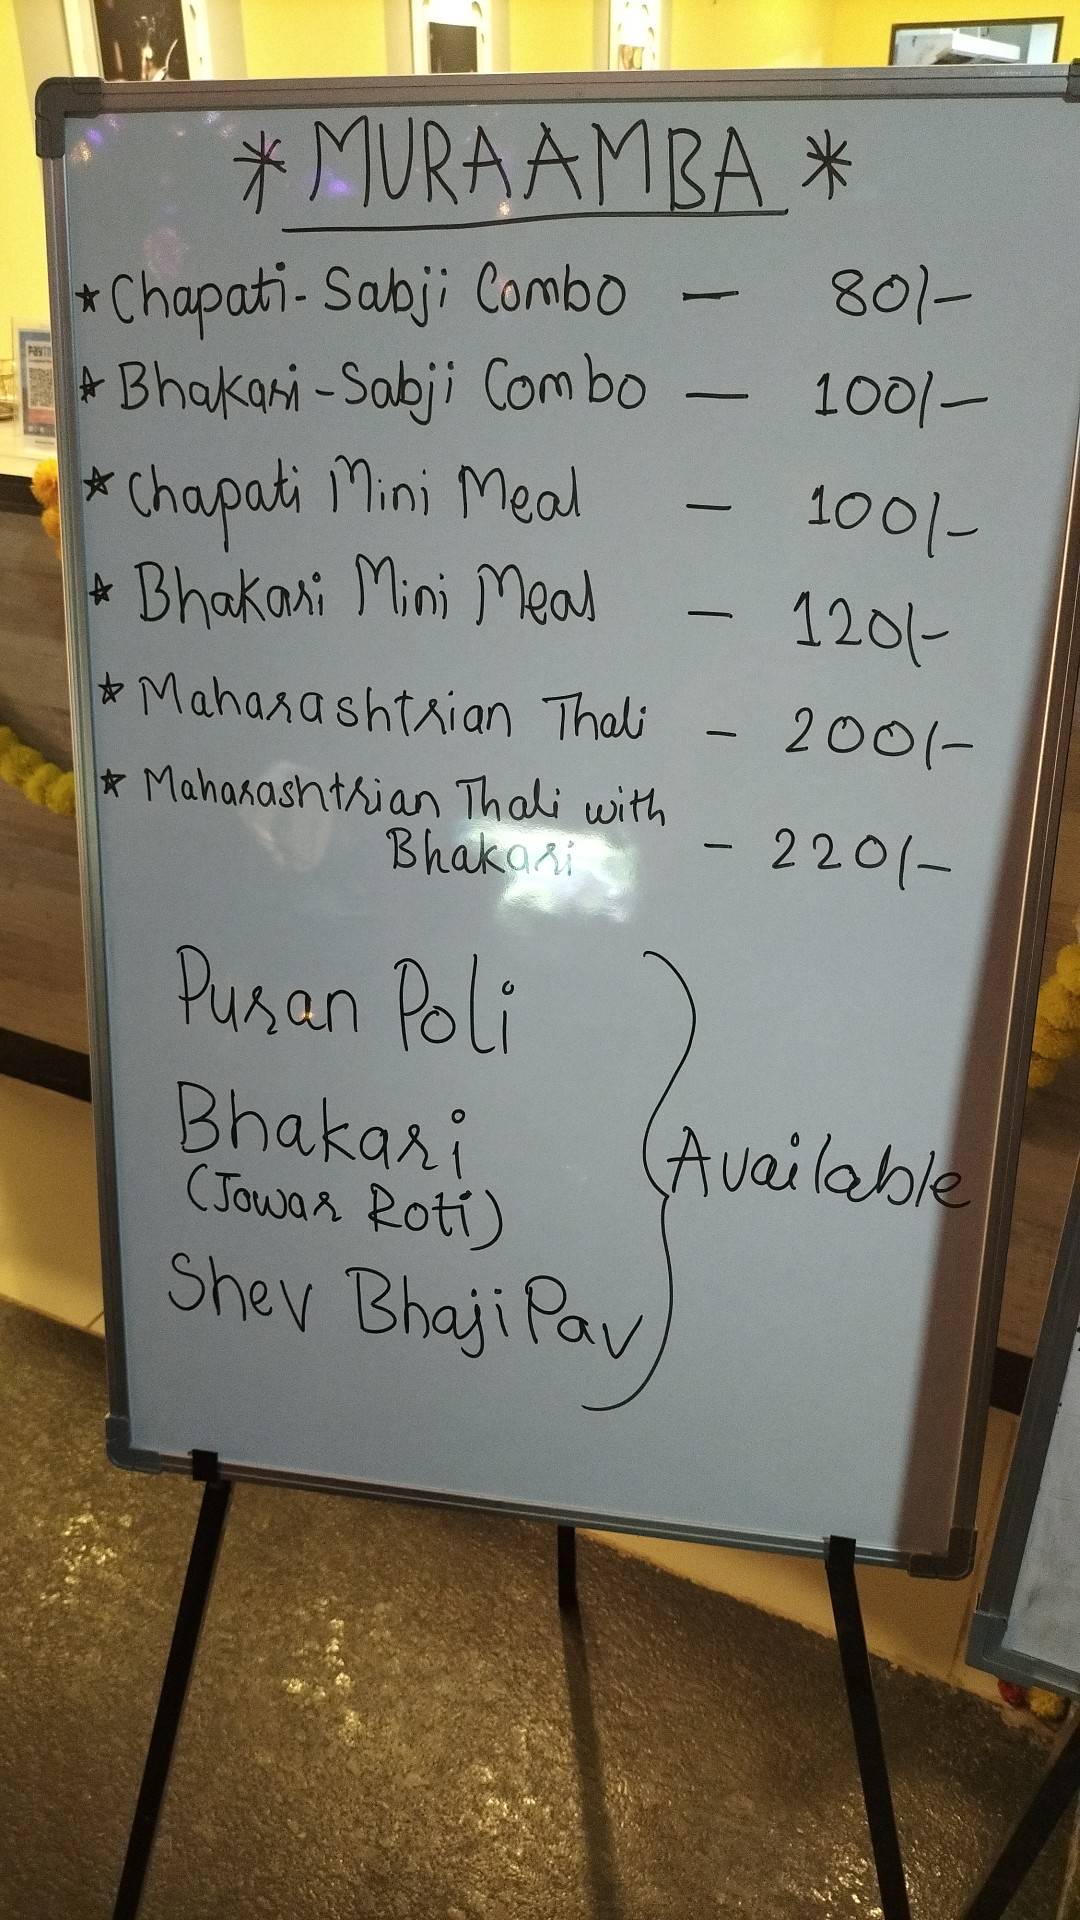 * MURAAMBA *
* Chapati - Sabji Combo — 80/-
* Bhakari - Sabji Combo — 100/-
* Chapati Mini Meal - 100/-
* Bhakari Mini Meal - 120/-
* Maharashtrian Thali - 200/-
* Maharashtrian Thali with
Bhakari - 220/-
Puran Poli
Bhakari
(Jowar Roti)
Available
Shev Bhaji Pav